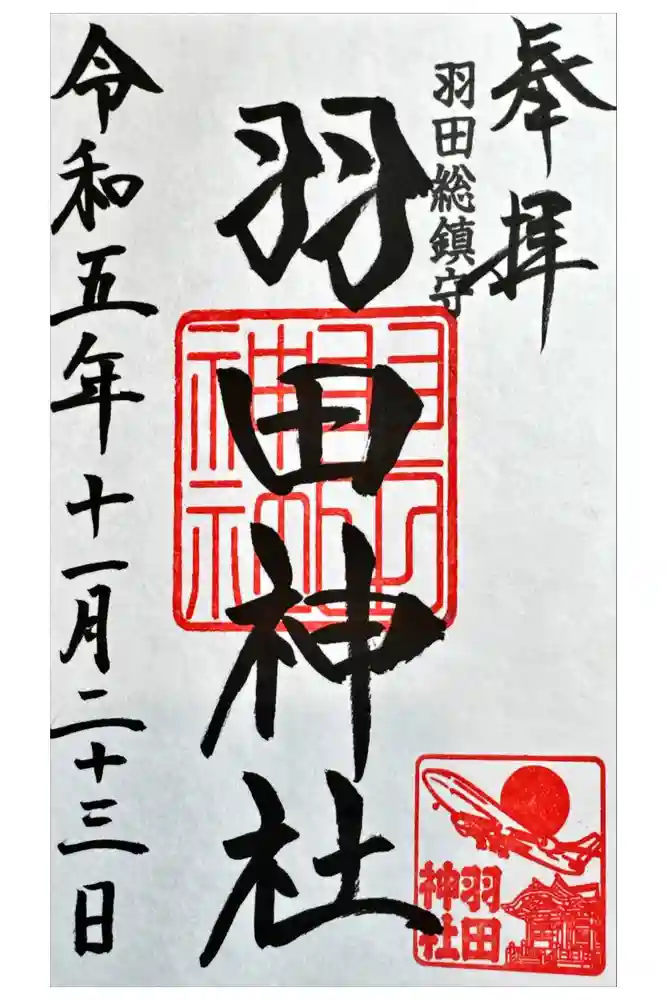 奉拝
羽田総鎮守
羽田神社
令和五年十一月二十三日
羽田
神社